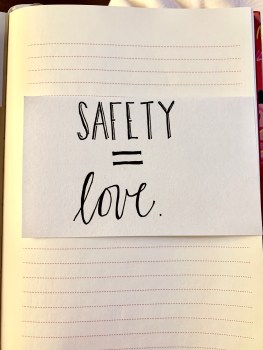 SAFETY
=
love.